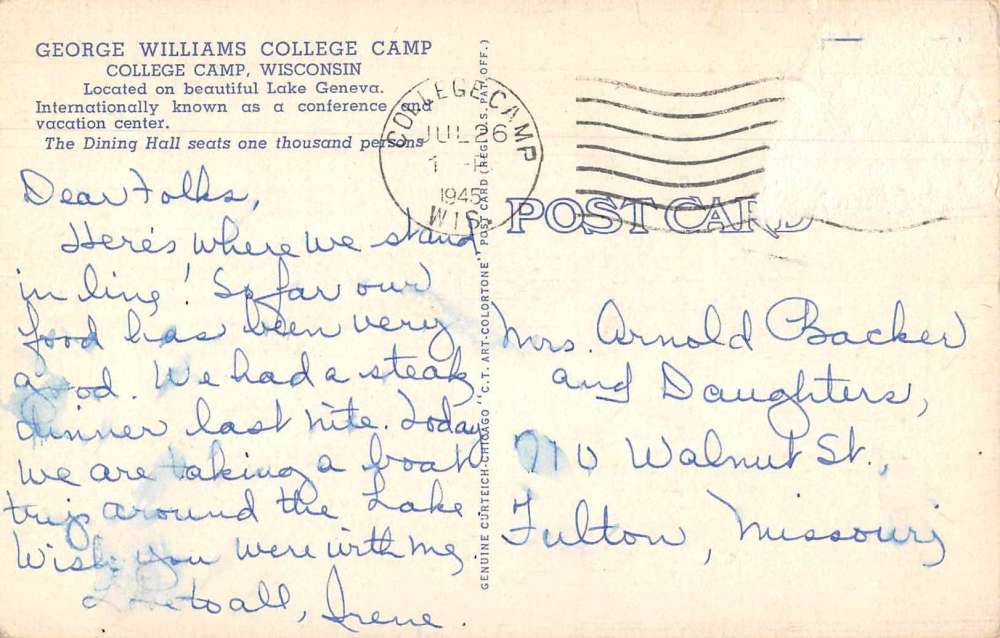 GEORGE WILLIAMS COLLEGE CAMP
COLLEGE CAMP, WISCONSIN
Located on beautiful Lake Geneva.
Internationally known as a conference and
vacation center.
The Dining Hall seats one thousand persons
Dear Folks,
Here's where we stand
in line! So far our
food has been very
good. We had a steak
dinner last nite. Today
we are taking a boat
trip around the Lake
Wish you were with me.
Love to all, Irene.
GENUINE CURTEICH-CHICAGO "C.T. ART-COLORTONE" POST CARD (REG. U.S. PAT. OFF.)
COLLEGE CAMP
JUL 26
1
1945
WIS.
POST CARD
Mrs. Arnold Backer
and Daughters,
710 Walnut St.,
Fulton, Missouri